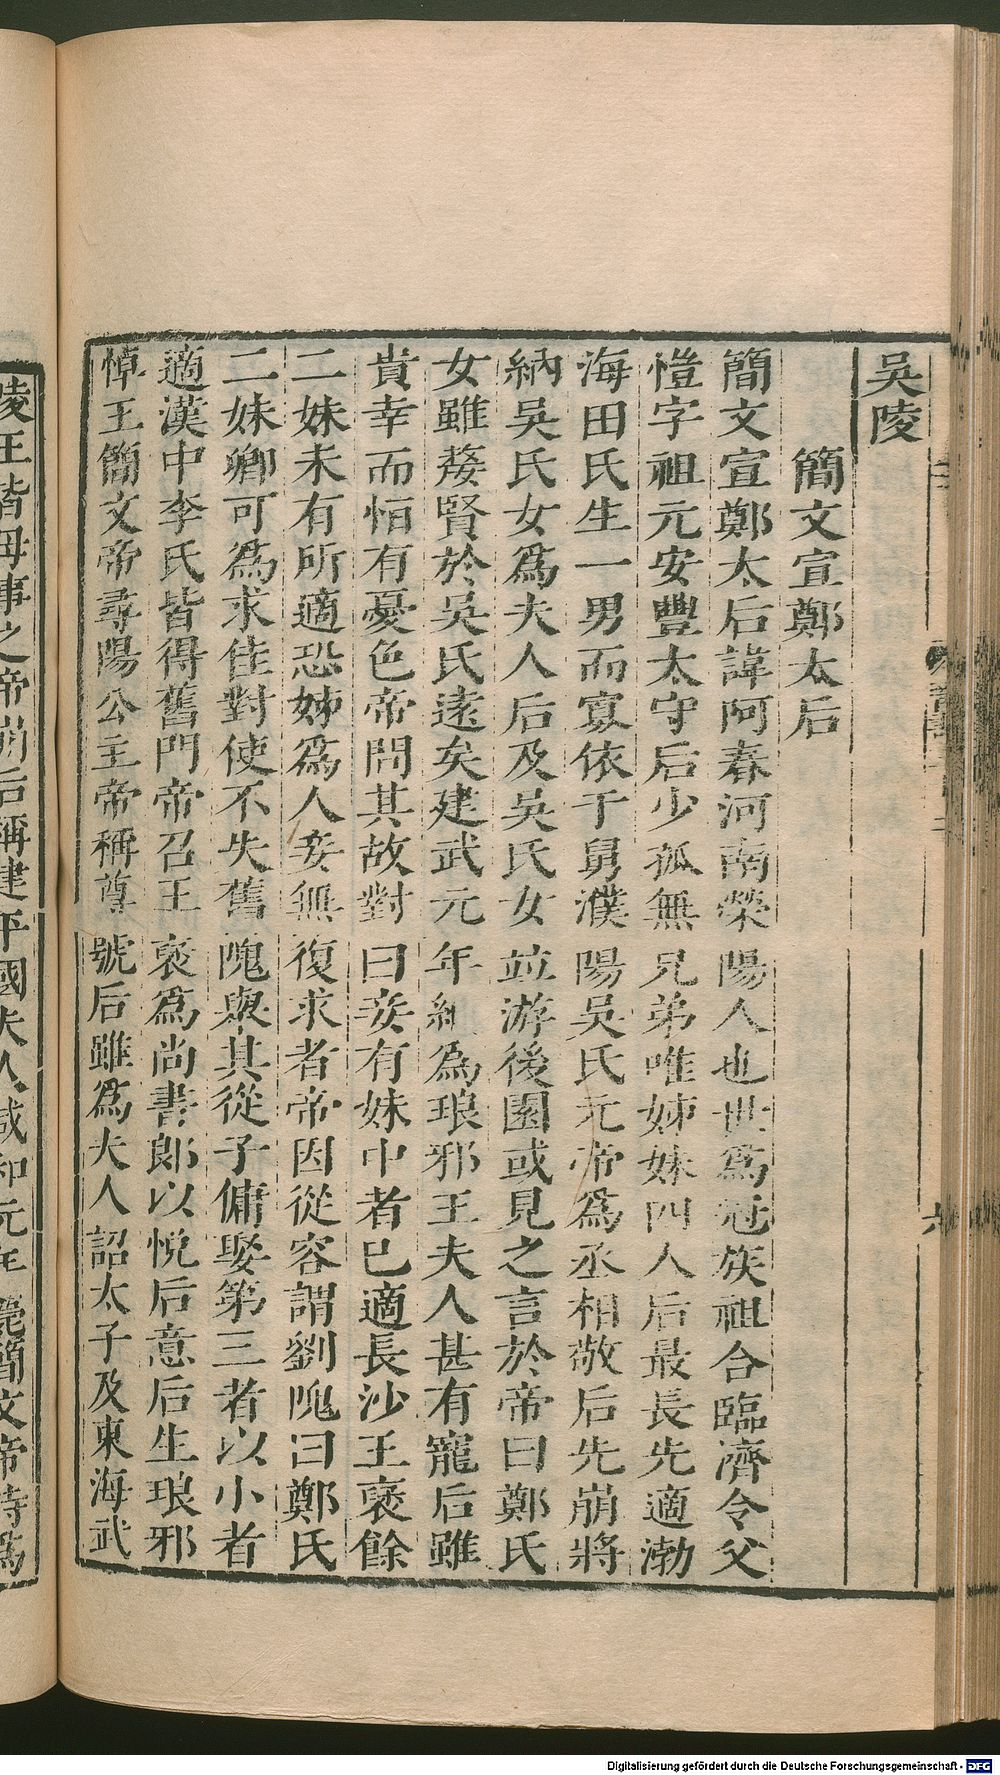 吳陵
簡文宣鄭太后
簡文宣鄭太后諱阿春河南滎陽人也世爲冠族祖合臨濟令父
愷字祖元安豐太守后少孤無兄弟唯姊妹四人后最長先適渤
海田氏生一男而寡依于舅濮陽吳氏元帝爲丞相敬后先崩將
納吳氏女爲夫人后及吳氏女竝游後園或見之言於帝曰鄭氏
女雖嫠賢於吳氏遠矣建武元年納爲琅邪王夫人甚有寵后雖
貴幸而恒有憂色帝問其故對曰妾有妹中者已適長沙王褒餘
二妹未有所適恐姊爲人妾無復求者帝因從容謂劉隗曰鄭氏
二妹卿可爲求佳對使不失舊隗與其從子傭娶第三者以小者
適漢中李氏皆得舊門帝召王褒爲尚書郎以悅后意后生琅邪
悼王簡文帝尋陽公主帝稱尊號后雖爲夫人詔太子及東海武
陵王皆母事之帝崩后稱建平國夫人咸和元年薨簡文帝時爲
Digitalisierung gefördert durch die Deutsche Forschungsgemeinschaft - DFG